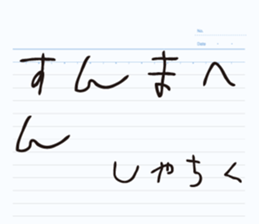 No.
Date
すんまへ
ん
しゃちく